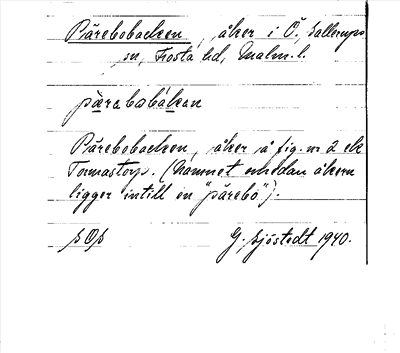 Pärebobacken, åker i Ö. Sallerups
sn, Frosta hd, Malm. l.
pärabobakan
Pärebobacken, åker å fig. nr 2 ek
Tormastorp. (Namnet enedan åkern
ligger intill en "pärebo").
G. Sjöstedt 1940.